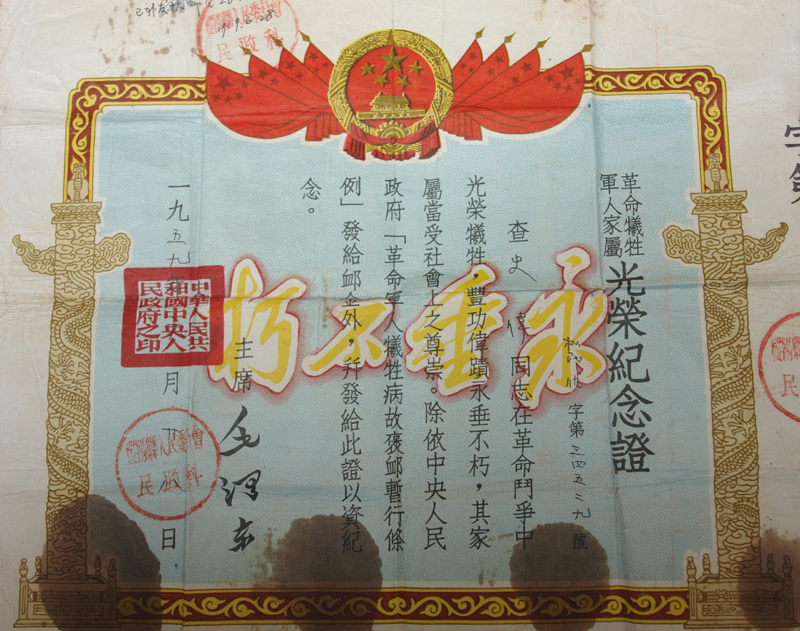 革命犧牲
軍人家屬
光榮紀念證
字第三四五二九號
查史 偉同志在革命鬥爭中
光榮犧牲,豐功偉蹟永垂不朽,其家
屬當受社會上之尊崇。除依中央人民
政府「革命軍人犧牲病故褒卹暫行條
例」發給卹金外,并發給此證以資紀
念。
主席 毛澤東
一九五九年 月 日
永垂不朽
中華人民共
和國中央人
民政府之印
民政科
民政科
1959.6.28
字第
民